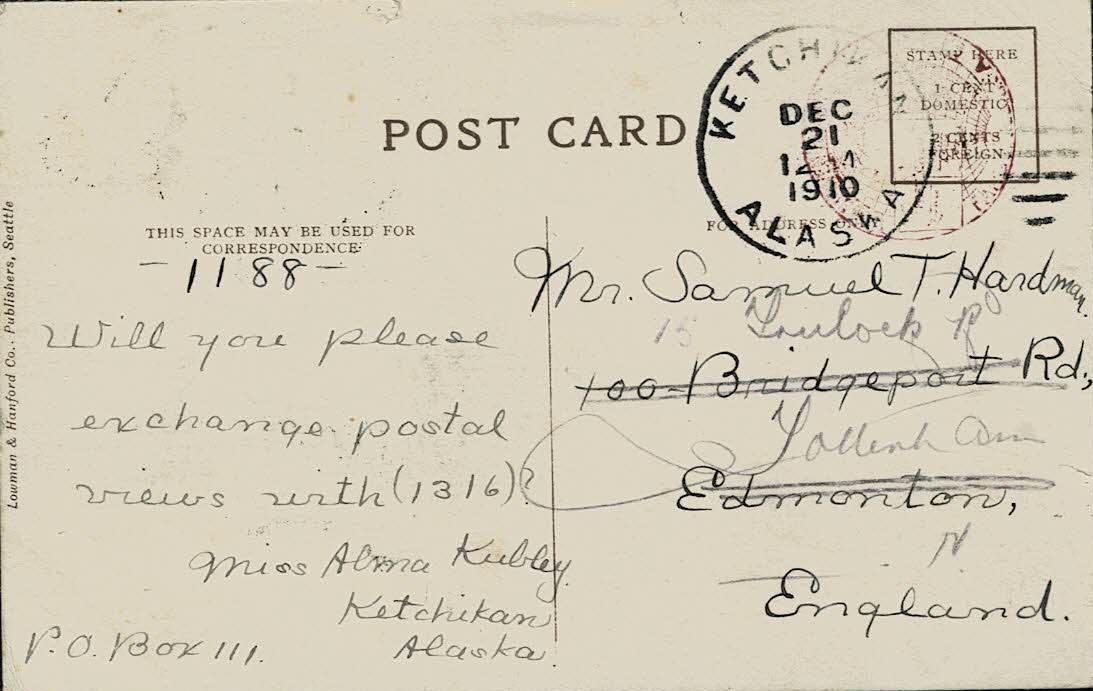 POST CARD
KETCHIKAN
DEC
21
1910
ALASKA
STAMP HERE
1 CENT
DOMESTIC
2 CENTS
FOREIGN
THIS SPACE MAY BE USED FOR
CORRESPONDENCE
FOR ADDRESS ONLY
Lowman & Hanford Co. Publishers, Seattle
-1188-
Will you please
exchange postal
views with (1316)?
Miss Alma Kubley
Ketchikan
P.O. Box 111. Alaska
Mr. Samuel T. Hardman.
15
100 Bridgeport Rd.,
Edmonton,
N
England.